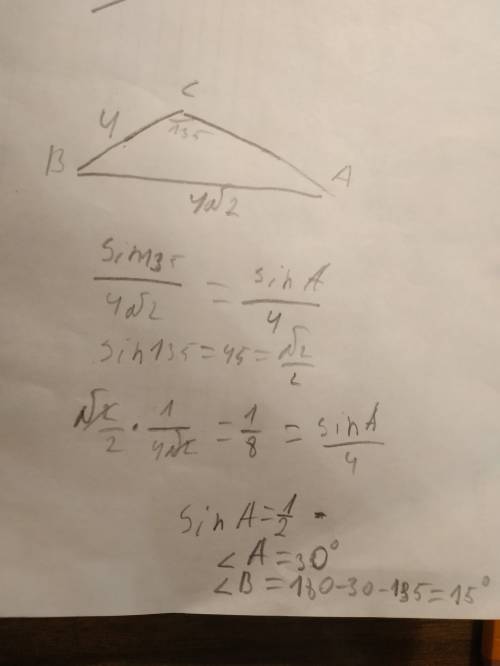 C
4
135
B
A
4√2
sin135/4√2 = sinA/4
sin135=45=√2/2
√2/2 · 1/4√2 = 1/8 = sinA/4
sinA=1/2
∠A=30°
∠B=180-30-135=15°